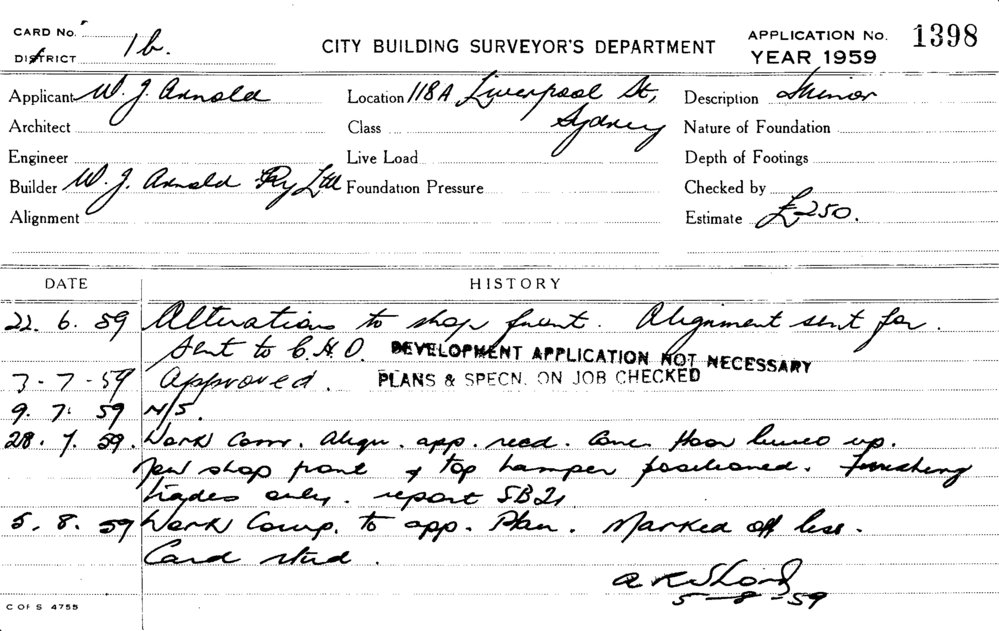 CARD No.
DISTRICT 1b.
CITY BUILDING SURVEYOR'S DEPARTMENT
APPLICATION No. 1398
YEAR 1959
Applicant W. J. Arnold
Location 118A Liverpool St,
Sydney
Description Minor
Architect
Class
Nature of Foundation
Engineer
Live Load
Depth of Footings
Builder W. J. Arnold Pty Ltd
Foundation Pressure
Checked by
Alignment
Estimate £250.
DATE HISTORY
22. 6. 59 Alterations to shop front. Alignment sent for.
Sent to C.H.O. DEVELOPMENT APPLICATION NOT NECESSARY
3-7-59 Approved. PLANS & SPECN. ON JOB CHECKED
9. 7. 59 N/S.
28. 7. 59. Work Comm. Align. app. recd. Conc. floor up.
New shop front & top hamper positioned. Finishing
trades only. report SB21
5. 8. 59 Work Comp. to app. Plan. Marked off less.
Card
5-8-59
C OF S 4755